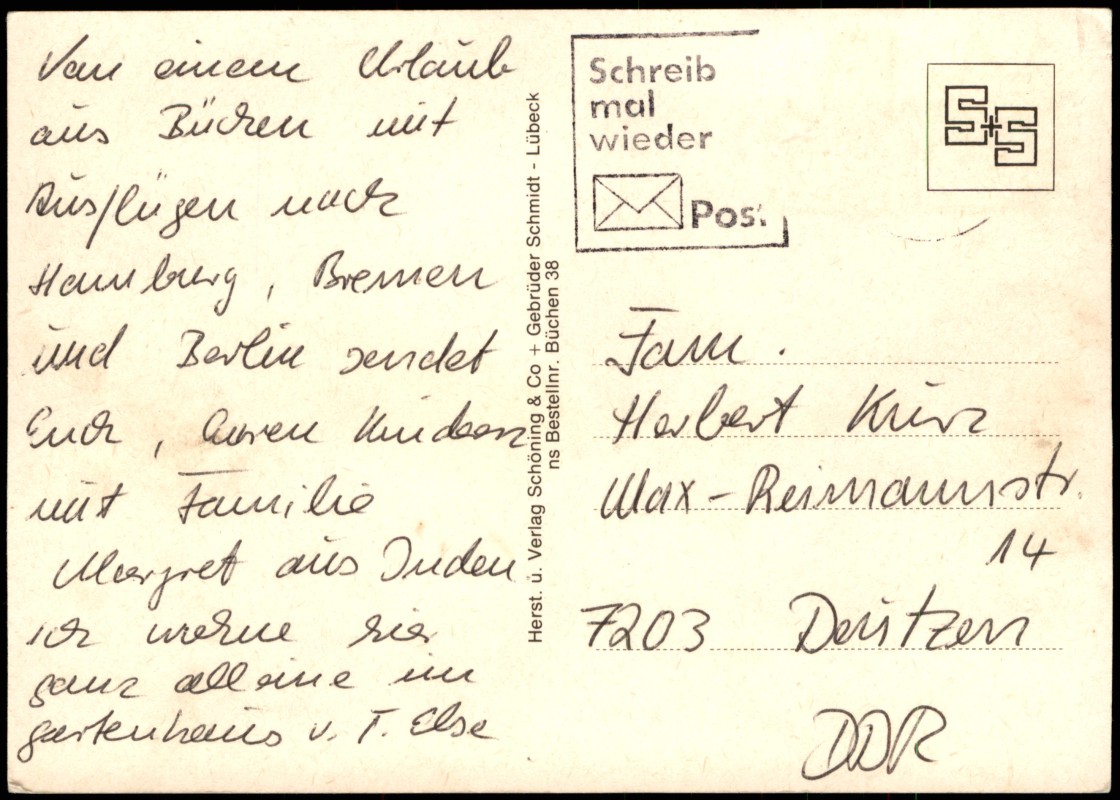 Von einem Urlaub
aus Büchen mit
Ausflügen nach
Hamburg, Bremen
und Berlin sendet
Euch, Euren Kindern
mit Familie
Margret aus Inden
ich wohne hier
ganz alleine im
gartenhaus v. T. Else
Herst. u. Verlag Schöning & Co + Gebrüder Schmidt - Lübeck
ns Bestellnr. Büchen 38
Schreib
mal
wieder
Post
S+S
Fam.
Herbert Kurz
Max-Reimannstr.
14
7203 Deutzen
DDR